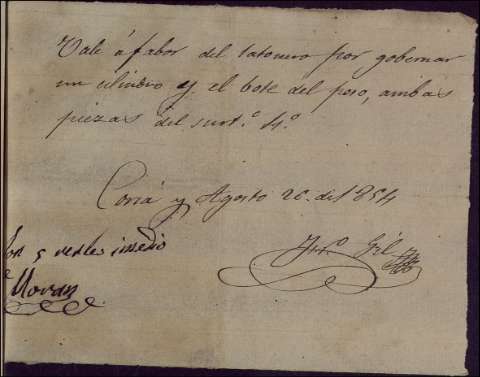 Vale á fabor del latonero por gobernar
un cilindro y el bote del peso, ambas
piezas del surt.º 4.º
Coria y Agosto 26. del 854
Gil
Son 5 reales i medio
Moran